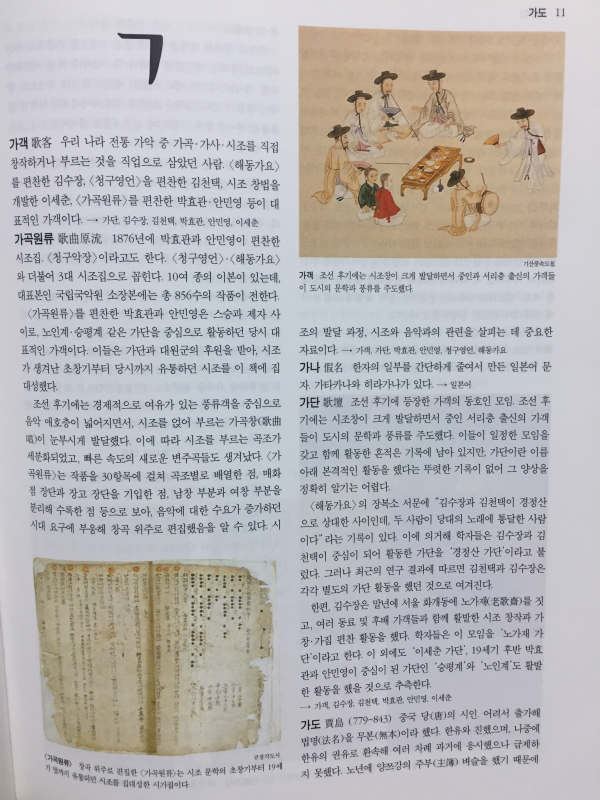 가도 11
ㄱ
가객 歌客 우리 나라 전통 가악 중 가곡·가사·시조를 직접
창작하거나 부르는 것을 직업으로 삼았던 사람. 〈해동가요〉
를 편찬한 김수장, 〈청구영언〉을 편찬한 김천택, 시조 창법을
개발한 이세춘, 〈가곡원류〉를 편찬한 박효관·안민영 등이 대
표적인 가객이다. → 가단, 김수장, 김천택, 박효관, 안민영, 이세춘
가곡원류 歌曲原流 1876년에 박효관과 안민영이 편찬한
시조집. 〈청구악장〉이라고도 한다. 〈청구영언〉·〈해동가요〉
와 더불어 3대 시조집으로 꼽힌다. 10여 종의 이본이 있는데,
대표본인 국립국악원 소장본에는 총 856수의 작품이 전한다.
〈가곡원류〉를 편찬한 박효관과 안민영은 스승과 제자 사
이로, 노인계·승평계 같은 가단을 중심으로 활동하던 당시 대
표적인 가객이다. 이들은 가단과 대원군의 후원을 받아, 시조
가 생겨난 초창기부터 당시까지 유통하던 시조를 이 책에 집
대성했다.
조선 후기에는 경제적으로 여유가 있는 풍류객을 중심으로
음악 애호층이 넓어지면서, 시조를 얹어 부르는 가곡창(歌曲
唱)이 눈부시게 발달했다. 이에 따라 시조를 부르는 곡조가
세분화되었고, 빠른 속도의 새로운 변주곡들도 생겨났다. 〈가
곡원류〉는 작품을 30항목에 걸쳐 곡조별로 배열한 점, 매화
점 장단과 장고 장단을 기입한 점, 남창 부분과 여창 부분을
분리해 수록한 점 등으로 보아, 음악에 대한 수요가 증가하던
시대 요구에 부응해 창곡 위주로 편집했음을 알 수 있다. 시
규장각도서
〈가곡원류〉 창곡 위주로 편집한 〈가곡원류〉는 시조 문학의 초창기부터 19세
기 말까지 유통되던 시조를 집대성한 시가집이다.
기산풍속도첩
가객 조선 후기에는 시조창이 크게 발달하면서 중인과 서리층 출신의 가객들
이 도시의 문학과 풍류를 주도했다.
조의 발달 과정, 시조와 음악과의 관련을 살피는 데 중요한
자료이다. → 가객, 가단, 박효관, 안민영, 청구영언, 해동가요
가나 假名 한자의 일부를 간단하게 줄여서 만든 일본어 문
자. 가타카나와 히라가나가 있다. → 일본어
가단 歌壇 조선 후기에 등장한 가객의 동호인 모임. 조선 후
기에는 시조창이 크게 발달하면서 중인 서리층 출신의 가객
들이 도시의 문학과 풍류를 주도했다. 이들이 일정한 모임을
갖고 함께 활동한 흔적은 기록에 남아 있지만, 가단이란 이름
아래 본격적인 활동을 했다는 뚜렷한 기록이 없어 그 양상을
정확히 알기는 어렵다.
〈해동가요〉의 장복소 서문에 “김수장과 김천택이 경정산
으로 상대한 사이인데, 두 사람이 당대의 노래에 통달한 사람
이다”라는 기록이 있다. 이에 의거해 학자들은 김수장과 김
천택이 중심이 되어 활동한 가단을 ‘경정산 가단’이라고 불
렀다. 그러나 최근의 연구 결과에 따르면 김천택과 김수장은
각각 별도의 가단 활동을 했던 것으로 여겨진다.
한편, 김수장은 말년에 서울 화개동에 노가재(老歌齋)를 짓
고, 여러 동료 및 후배 가객들과 함께 활발한 시조 창작과 가
창·가집 편찬 활동을 했다. 학자들은 이 모임을 ‘노가재 가
단’이라고 한다. 이 외에도 ‘이세춘 가단’, 19세기 후반 박효
관과 안민영이 중심이 된 가단인 ‘승평계’와 ‘노인계’도 활발
한 활동을 했을 것으로 추측한다.
→ 가객, 김수장, 김천택, 박효관, 안민영, 이세춘
가도 賈島 (779~843) 중국 당(唐)의 시인. 어려서 출가해
법명(法名)을 무본(無本)이라 했다. 한유와 친했으며, 나중에
한유의 권유로 환속해 여러 차례 과거에 응시했으나 급제하
지 못했다. 노년에 양쯔강의 주부(主簿) 벼슬을 했기 때문에